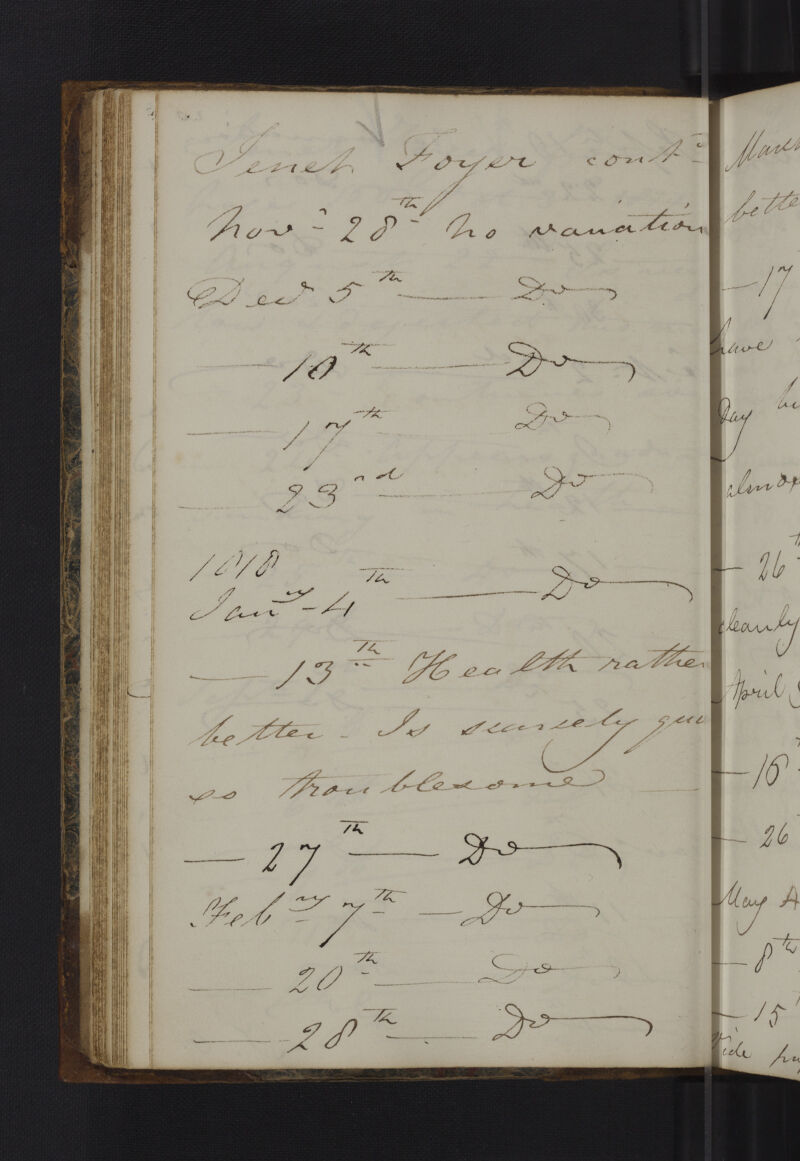 Jenet Foyer contd
Novr 28th no variation
Decr 5th — Do
— 10th — Do
— 17th — Do
— 23rd — Do
1818
Jany 4th — Do
— 13th Health rather
better. Is scarcely qui
so troublesome —
— 27th — Do
Feby 7th — Do
— 20th — Do
— 28th — Do
March
bette
— 17
have
Day bu
almos
— 26th
cleanly
April
— 16
— 26
May A
— 8th
— 15
Vide